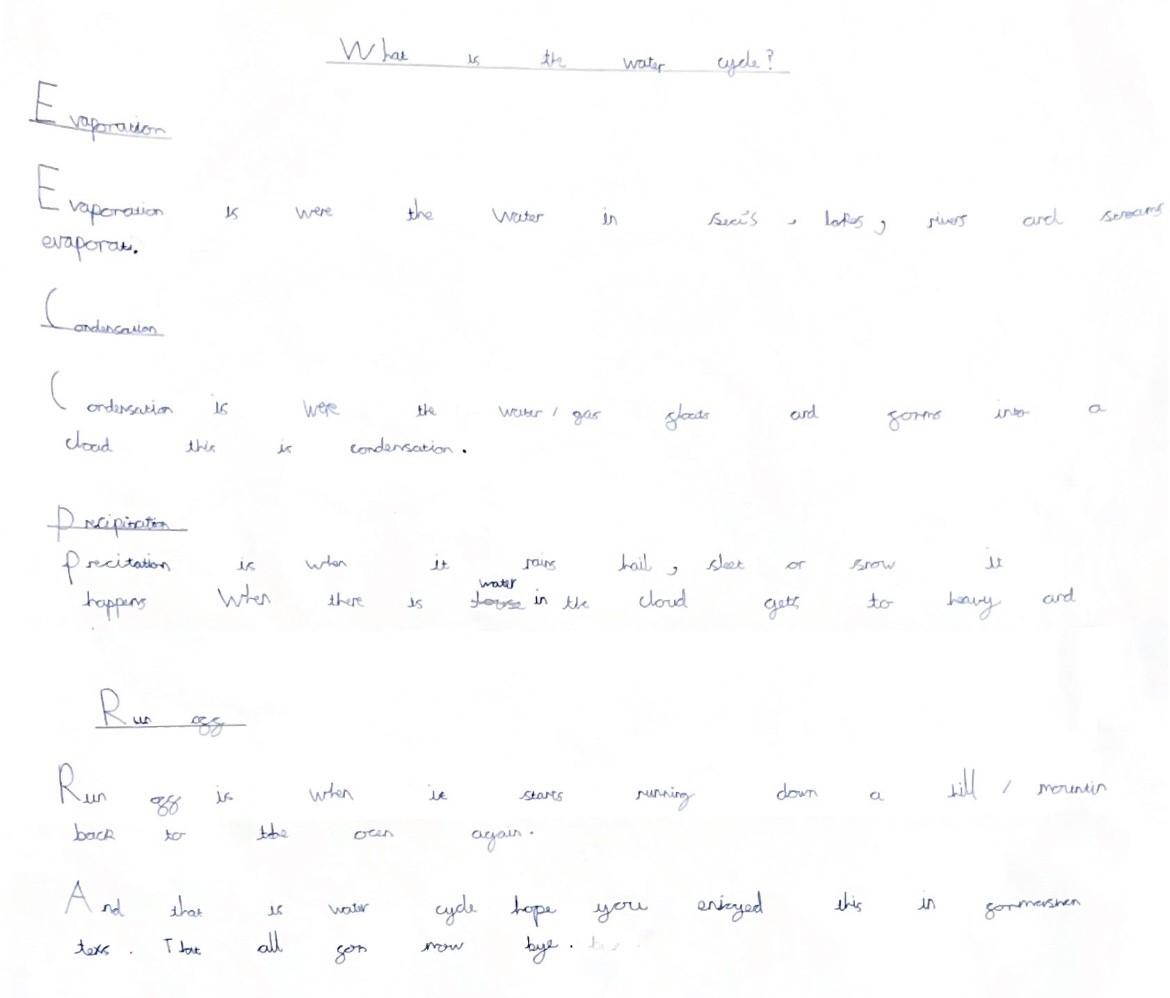 What is the water cycle?
Evaporation
Evaporation is were the water in sea's, laks, rivers and streams
evaporat.
Condensation
Condensation is were the water / gas floats and forms into a
cloud this is condensation.
Precipitation
Precitation is when it rains hail, sleet or snow it
happens When there is water in the cloud gets to heavy and
Run off
Run off is when it starts running down a hill / mountin
back to the ocen again.
And that is water cycle hope you enjoyed this in formershen
text. That all for now bye.